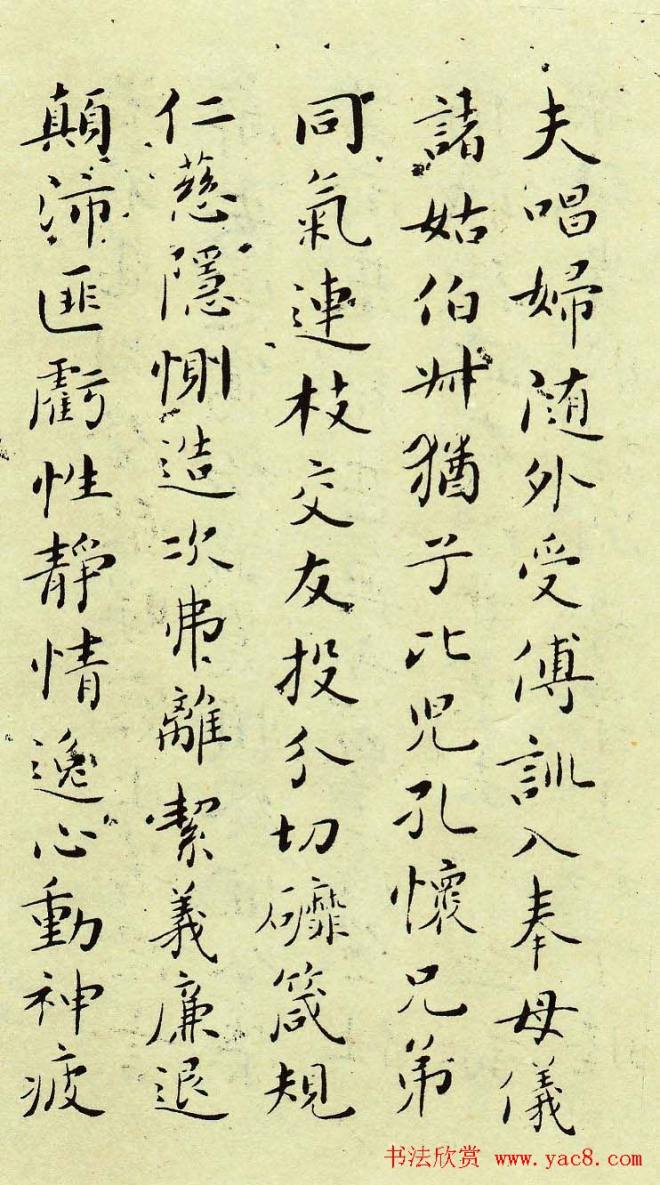 夫唱婦随外受傅訓入奉母儀
諸姑伯叔猶子比児孔懐兄弟
同氣連枝交友投分切磨箴規
仁慈隱惻造次弗離絜義廉退
顛沛匪虧性靜情逸心動神疲
书法欣赏 www.yac8.com